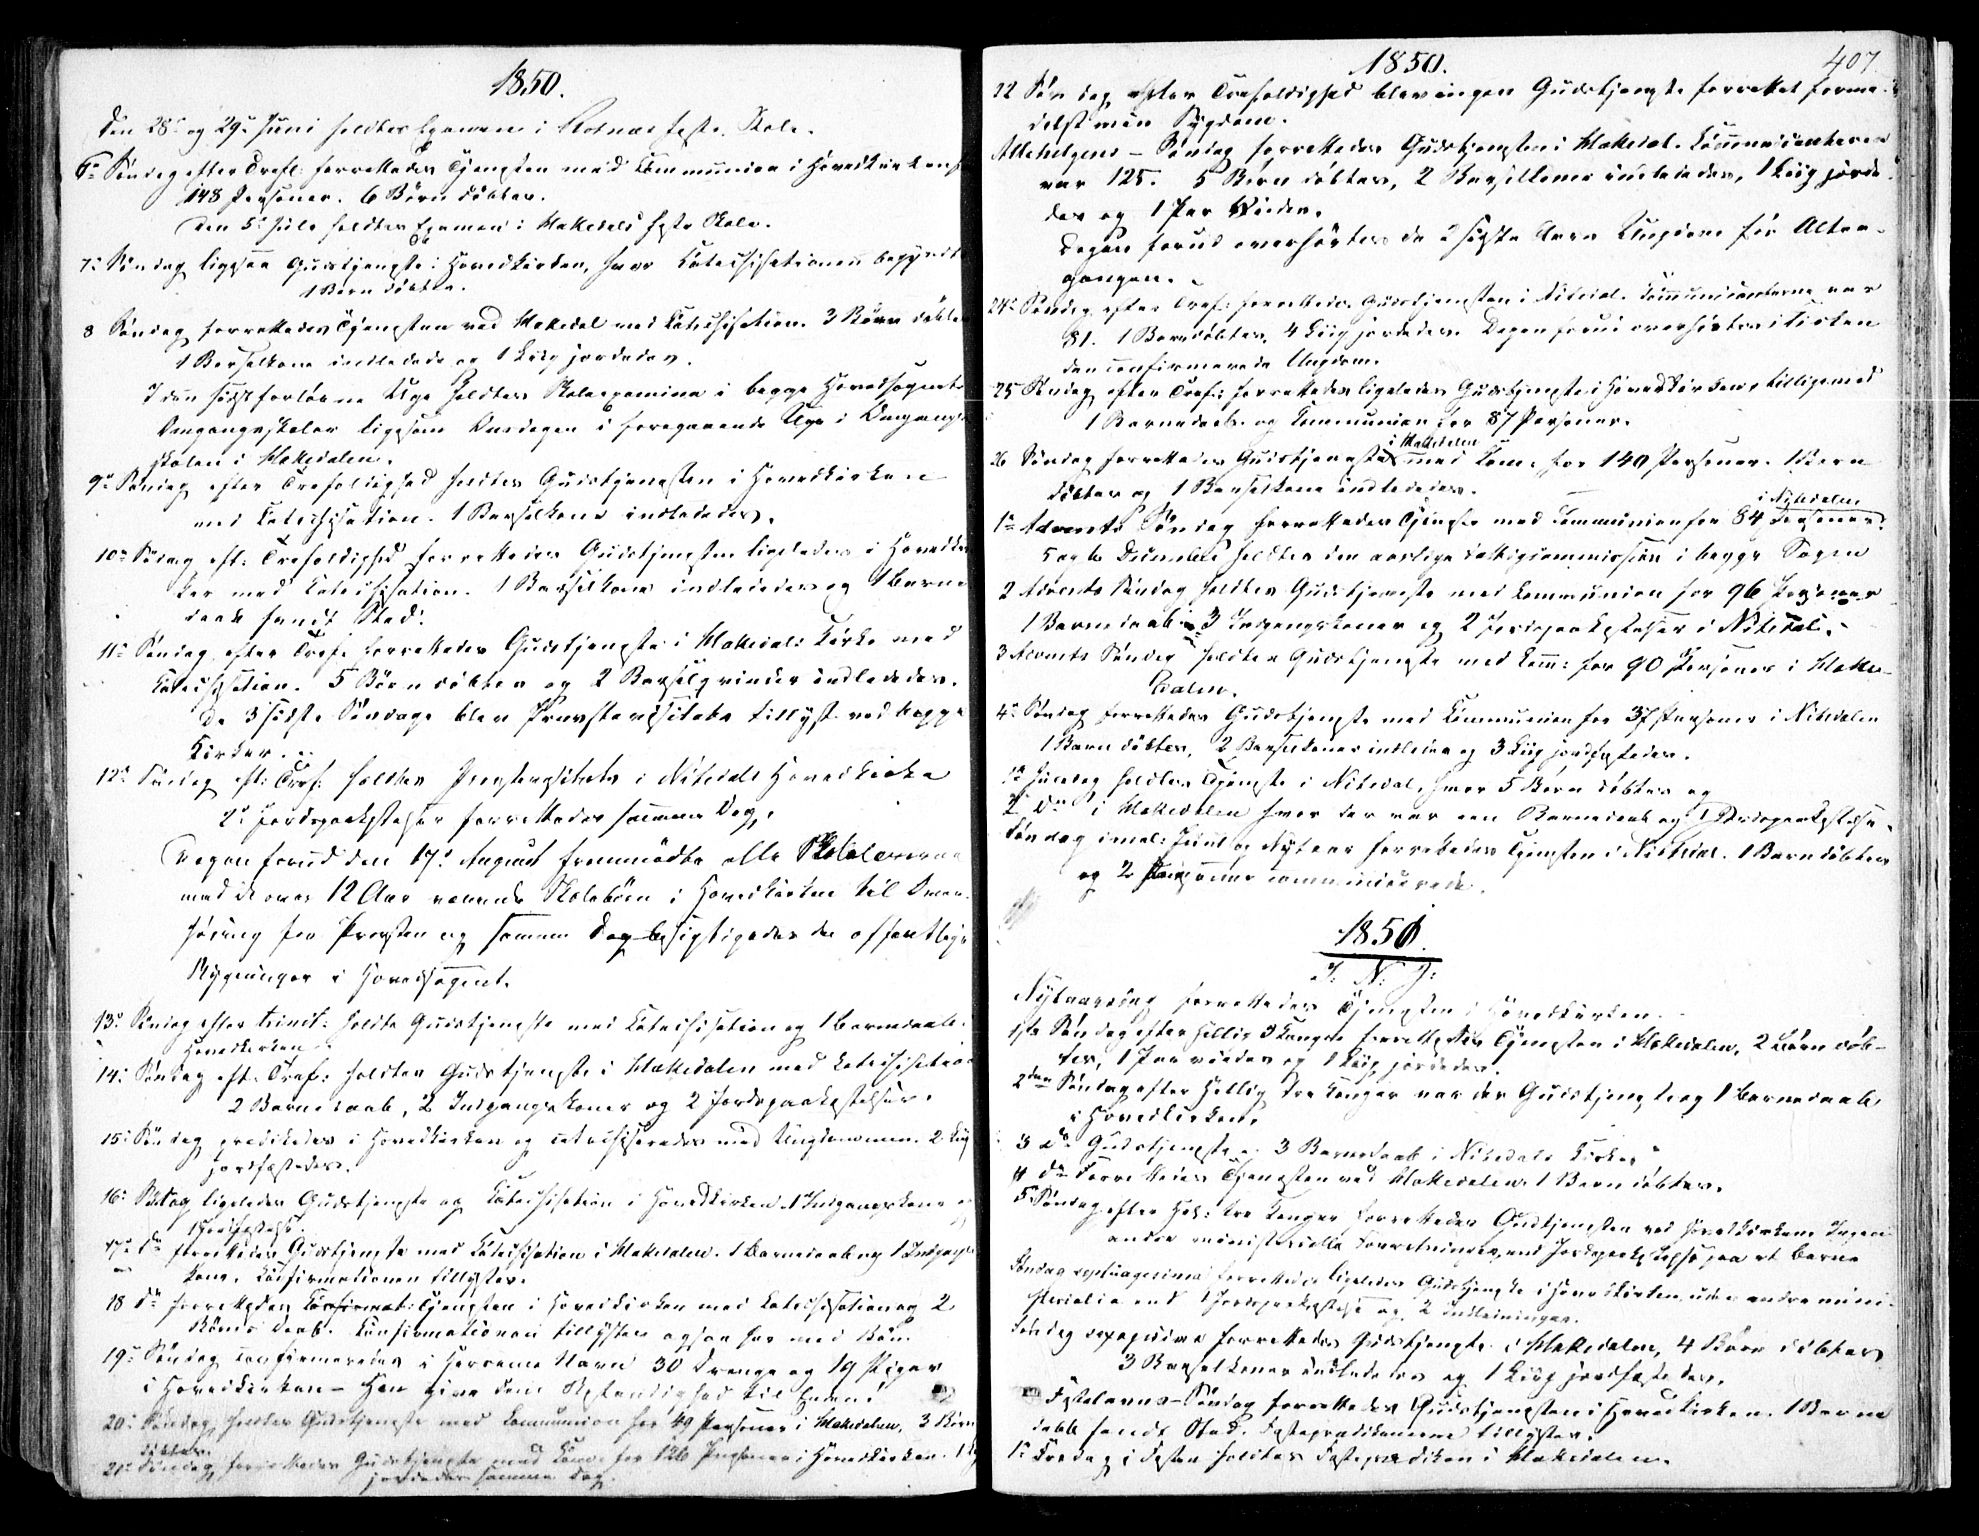 1850.
Den 28de og 29de Juni holdtes Examen i Rotnæs faste Skole.
6te Søndag efter Tref: forrettedes Tjenesten med Communion i Hovedkirken for
148 Personer. 6 Børn døbtes.
Den 5te Juli holdtes Examen i Hakedals faste Skole.
7de Søndag ligesaa Gudstjeneste i Hovedkirken, hvor Catechisationen begyndte
1 Barn døbtes.
8 Søndag forrettedes Tjenesten ved Hakedal med Catechisation. 3 Børn døbtes
1 Barselkone indledede og 1 Liig jordedes.
I den sidstforløbne Uge holdtes Skoleexamina i begge Hovedsognets
Omgangsskoler ligesom Onsdagen i foregaaende Uge i Omgangs-
skolen i Hakedalen.
9de Søndag efter Trefoldighed holdtes Gudstjenesten i Hovedkirken
med Catechisation. 1 Barselkone indlededes.
10de Søndag eft: Trefoldighed forrettedes Gudstjenesten ligeledes i Hovedkir-
ken med Catechisation. 1 Barselkone indlededes og 1 Barne
daab fandt Sted.
11te Søndag efter Tref: forrettedes Gudstjeneste i Hakedals Kirke med
Catechisation. 5 Børn døbtes og 2 Barselqvinder indlededes.
De 3 sidste Søndage blev Provstevisitats tillyst ved begge
Kirker.
12te Søndag eft: Tref: holdtes Provstevisitats i Nitedals Hovedkirke
2de Jordpaakastelser forrettedes samme Dag.
Dagen forud den 17de August fremmødte alle Skolelærerne
med de over 12 Aar værende Skolebørn i Hovedkirken til Over-
høring for Provsten og samme Dag besigtigedes de offentlige
Bygninger i Hovedsognet.
13de Søndag efter trinit: holdtes Gudstjeneste med Catechisation og 1 Barnedaab
Hovedkirken
14de Søndag eft. Tref: holdtes Gudstjeneste i Hakedalen med Catechisation
2 Barnedaab, 2 Indgangskoner og 2 Jordpaakastelser.
15de Søndag prædikedes i Hovedkirken og catechiseredes med Ungdommen. 2 Liig
jordfæstedes.
16de Søndag ligeledes Gudstjeneste og Catechisation i Hovedkirken 1 Indgangskone og
1 Jordfæstelse.
17de do forrettedes Gudstjeneste med Catechisation i Hakedalen. 1 Barnedaab og 1 Indgangs
kone. Confirmationen tillystes.
18 de forrettedes Tjenesten i Hovedkirken med Catechisation og 2
Børns Daab. Confirmationen tillystes ogsaa her med Bøn.
19de Søndag confirmeredes i Herrens Navn 30 Drenge og 19 Piger
i Hovedkirken – Han give dem Bestandighed til Enden!
20de Søndag holdtes Gudstjeneste med Communion for 49 Personer i Hakedalen, 3 Børn
døbtes.
21de Søndag forrettedes Gudstjeneste med Comm: for 126 Personer i Hovedkirken. 1 Liig
jordedes samme Dag.
1850.
407
22 Søndag efter Trefoldighed blev ingen Gudstjeneste forrettet forme-
delst min Sygdom.
Allehelgens – Søndag forrettedes Gudstjenesten i Hakedal. Communicanternes
var 125. 5 Børn døbtes, 2 Barselkoner indlededes, 1 Liig jorde-
des og 1 Par Viedes.
Dagen forud overhørtes de 2 sidste Aars Ungdom før Alter-
gangen.
24de Søndag efter Tref: forrettedes Gudstjenesten i Nitedal. Communicanterne var
81. 1 Barn døbtes, 4 Liig jordedes. Dagen forud overhørtes i Kirken
den confirmerede Ungdom.
25 Søndag efter Tref: forrettedes ligeledes Gudstjeneste i Hovedkirken, tilligemed
1 Barnedaab og Communion for 87 Personer.
i Hakedalen
26 Søndag forrettedes Gudstjeneste med Com. for 140 Personer. 1 Barn
døbtes og 1 Barselkone indlededes.
i Nitedalen
1ste Advents Søndag forrettedes Tjeneste med Communion for 84 Personer.
5 og 6 December holdtes den aarlige Fattigcommission i begge Sogne
2 Advents Søndag holdtes Gudstjeneste med Communion for 96 Personer
1 Barnedaab, 3 Indgangskoner og 2 Jordpaakastelser i Nitedal.
3 Advents Søndag holdtes Gudstjeneste med Com: for 90 Personer i Hake-
dalen.
4de Søndag forrettedes Gudstjeneste med Communion for 37 Personer i Nitedalen
1 Barn døbtes, 2 Barselkoner indledes og 3 Liig jordfæstedes.
1ste Juledag holdtes Tjeneste i Nitedal, hvor 5 Børn døbtes og
2de Do i Hakedalen hvor der var een Barnedaab og 1 Jordpaakastelse.
Søndag imel: Juul og Nytaar forrettedes Tjenesten i Nitedal. 1 Barn døbtes
og 2 Personer communicerede.
1851.
I: N: J:
Nytaarsdag forrettedes Tjenesten i Hovedkirken.
1ste Søndag efter Hellig 3 Konger forrettedes Tjenesten i Hakedalen, 2 Børn døb-
tes, 1 Par viedes og 1 Liig jordedes.
2den Søndag efter Hellig tre Konger var der Gudstjeneste og 1 Barnedaab
i Hovedkirken.
3 do Gudstjeneste og 3 Barnedaab i Nitedals Kirke.
4 do Forrettedes Tjenesten ved Hakedalen. 1 Barn døbtes.
5te Søndag efter Hel: tre Konger forrettedes Gudstjenesten ved Hovedkirken. Ingen
andre ministerielle Forretninger, end Jordpaakastelse paa et Barn
Søndag septuagesima forrettedes ligeledes Gudstjeneste i Hovedkirken uden andre mini-
sterialia end 1 Jordpaakastelse og 2 Indledninger.
Søndag sexagesima forrettedes Gudstjeneste i Hakedalen, 4 Børn døbtes
3 Barselkoner indlededes og 1 Liig jordfæstedes.
Fastelavns-Søndag forrettedes Gudstjenesten i Hovedkirken. 1 Barne
daab fandt Sted. Fasteprædikenerne tillystes.
1ste Fredag i Fasten holdtes Fasteprædiken i Hakedalen.